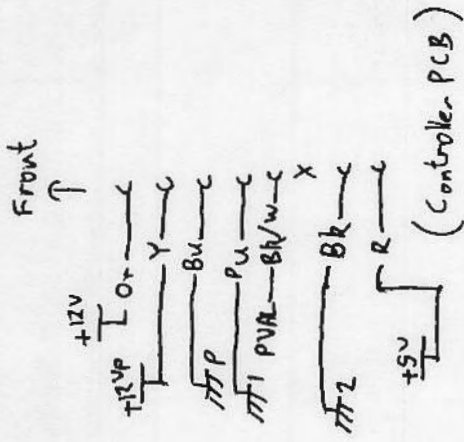 Front
+12V
Or
+12Vp
Y
Bu
P
Pu
1
PVAL
Bk/w
X
Bk
2
R
+5V
(Controller PCB)